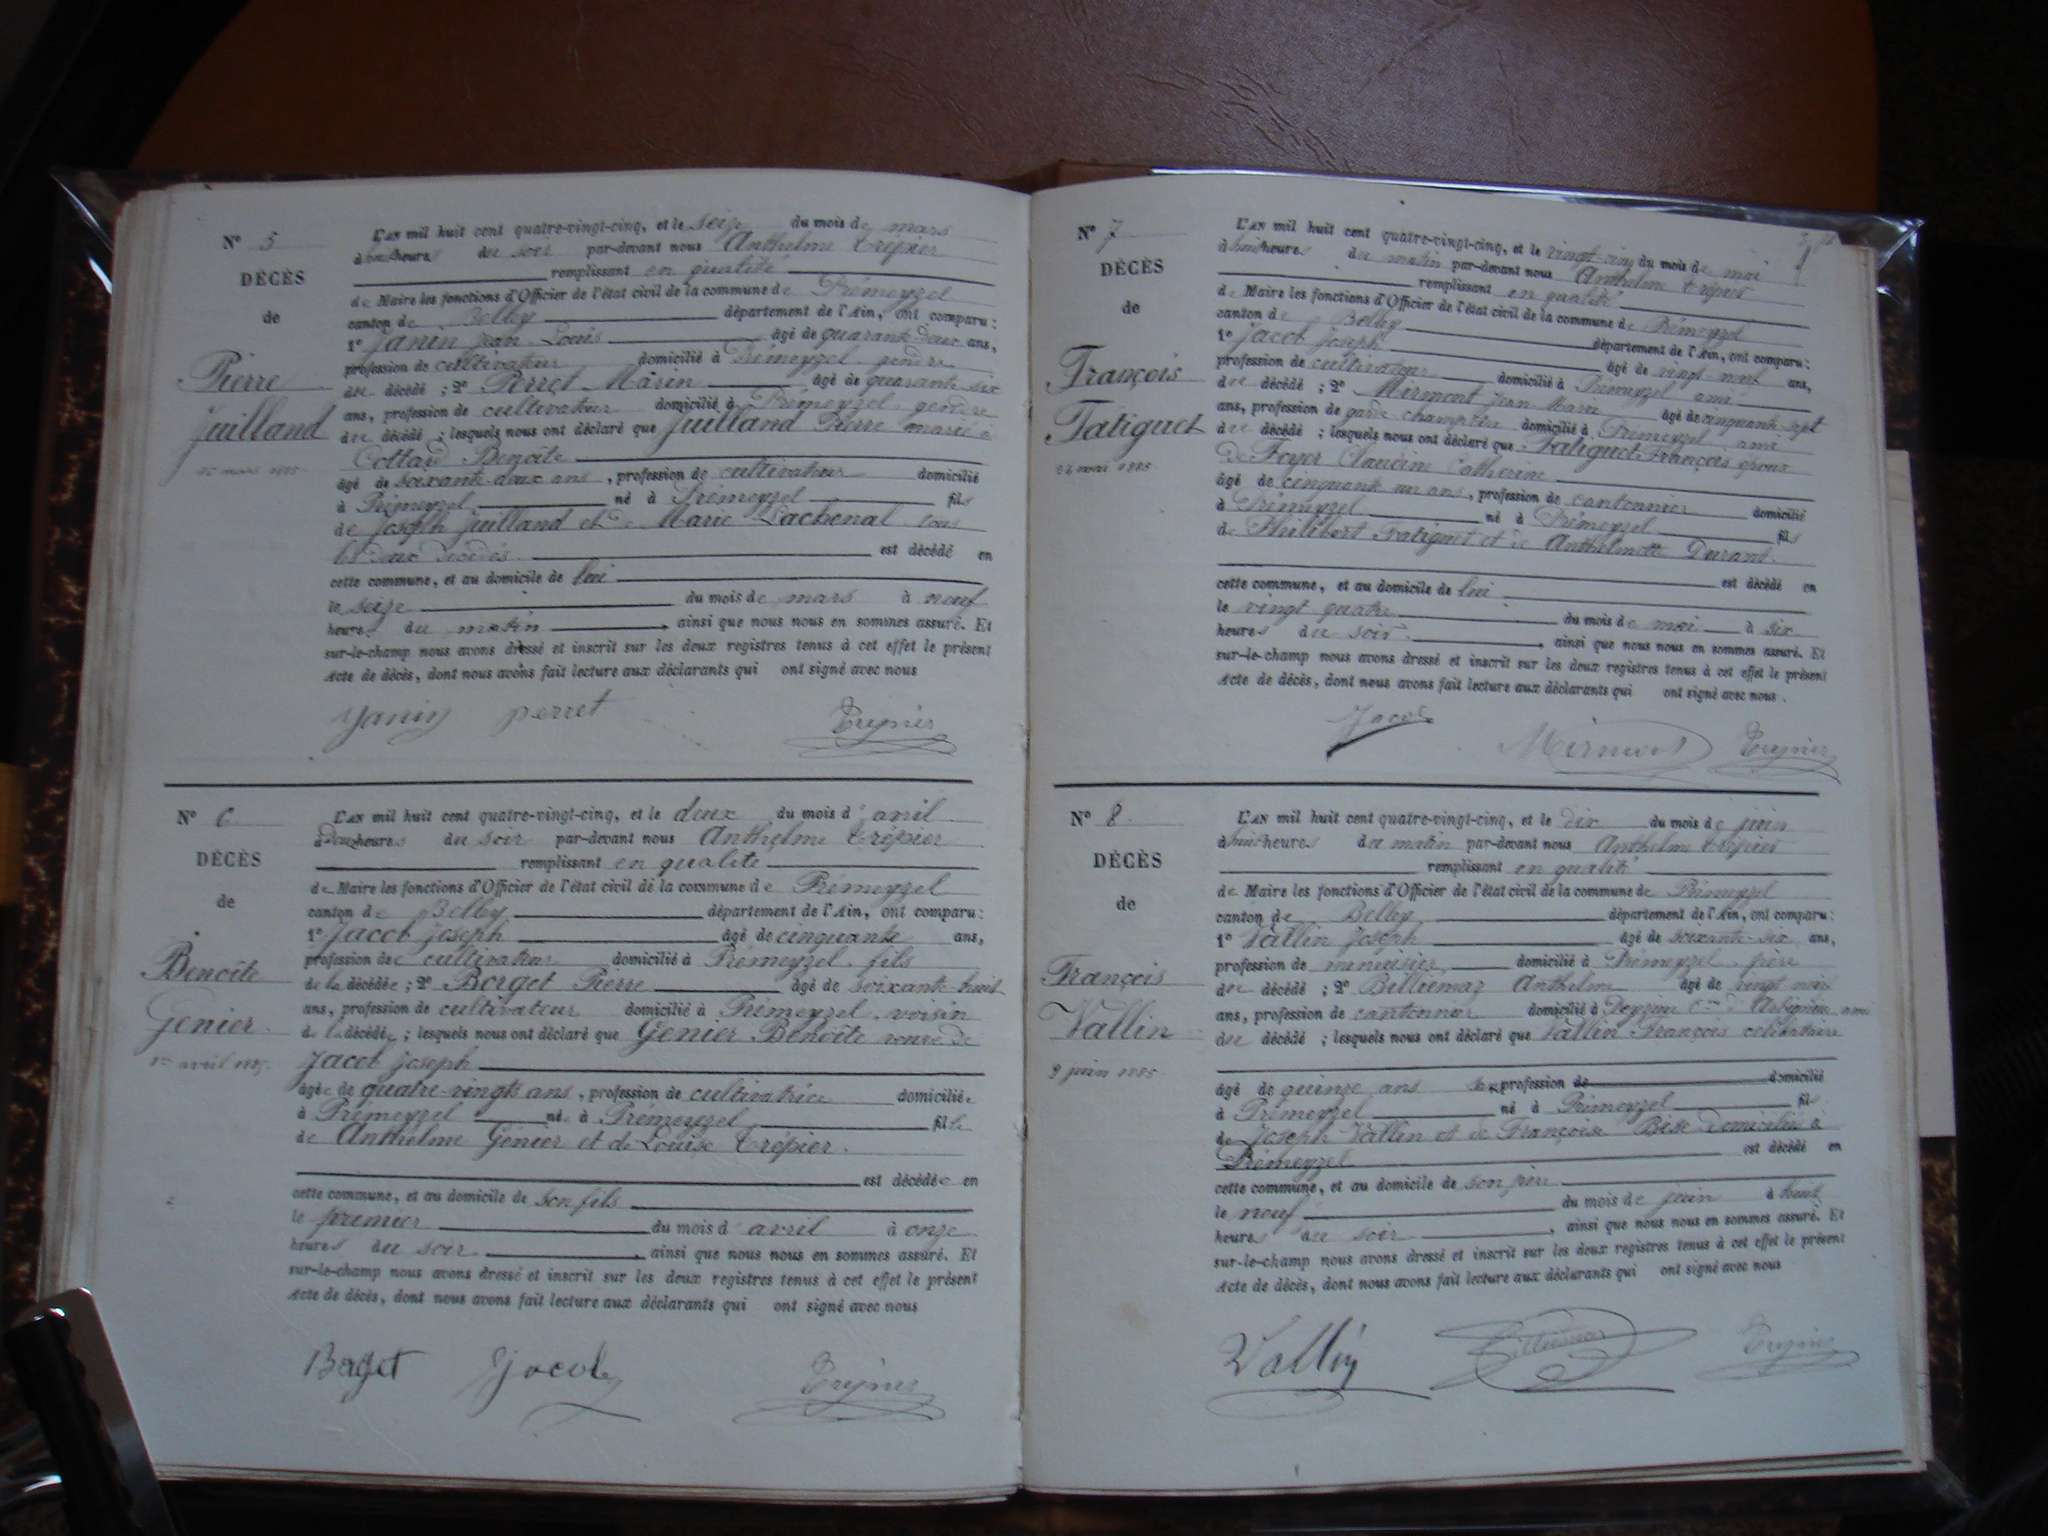 N° 5
DÉCÈS
de
Pierre
Juilland
16 mars 1885
L'AN mil huit cent quatre-vingt-cinq, et le seize du mois de mars
à heures du soir par-devant nous Anthelme Trépier
remplissant en qualité
de Maire les fonctions d'Officier de l'état civil de la commune de Prémeyzel
canton de Belley département de l'Ain, ont comparu :
1° Janin Jean Louis âgé de quarante deux ans,
profession de cultivateur domicilié à Prémeyzel gendre
du décédé ; 2° Perret Marin âgé de quarante six
ans, profession de cultivateur domicilié à Prémeyzel, gendre
du décédé ; lesquels nous ont déclaré que Juilland Pierre marié à
Cottard Benoîte
âgé de soixante-douze ans, profession de cultivateur domicilié
à Prémeyzel né à Prémeyzel fils
de Joseph Juilland et de Marie Lachenal tous
les deux décédés est décédé en
cette commune, et au domicile de lui
le seize du mois de mars à neuf
heures du matin, ainsi que nous nous en sommes assuré. Et
sur-le-champ nous avons dressé et inscrit sur les deux registres tenus à cet effet le présent
acte de décès, dont nous avons fait lecture aux déclarants qui ont signé avec nous
Janin perret Trepier
N° 6
DÉCÈS
de
Benoîte
Genier
1er avril 1885
L'AN mil huit cent quatre-vingt-cinq, et le deux du mois d'avril
à heures du soir par-devant nous Anthelme Trépier
remplissant en qualité
de Maire les fonctions d'Officier de l'état civil de la commune de Prémeyzel
canton de Belley département de l'Ain, ont comparu :
1° Jacob Joseph âgé de cinquante ans,
profession de cultivateur domicilié à Prémeyzel, fils
de la décédée ; 2° Borget Pierre âgé de soixante-huit
ans, profession de cultivateur domicilié à Prémeyzel, voisin
de la décédée ; lesquels nous ont déclaré que Genier Benoîte veuve de
Jacob Joseph
âgée de quatre-vingts ans, profession de cultivatrice domiciliée
à Prémeyzel née à Prémeyzel fille
de Anthelme Genier et de Louise Trépier.
est décédée en
cette commune, et au domicile de son fils
le premier du mois d'avril à onze
heures du soir, ainsi que nous nous en sommes assuré. Et
sur-le-champ nous avons dressé et inscrit sur les deux registres tenus à cet effet le présent
acte de décès, dont nous avons fait lecture aux déclarants qui ont signé avec nous
Jacob Trepier
N° 7
DÉCÈS
de
François
Fatiguet
24 mai 1885
L'AN mil huit cent quatre-vingt-cinq, et le vingt-cinq du mois de mai
à heures du matin par-devant nous Anthelme Trépier
remplissant en qualité
de Maire les fonctions d'Officier de l'état civil de la commune de Prémeyzel
canton de Belley département de l'Ain, ont comparu :
1° Jacob Joseph âgé de vingt-neuf ans,
profession de cultivateur domicilié à Prémeyzel ami
du décédé ; 2° Mirmont Jean Marie âgé de cinquante sept
ans, profession de garde champêtre domicilié à Prémeyzel ami
du décédé ; lesquels nous ont déclaré que Fatiguet François époux
de Foyer Claudine Catherine
âgé de cinquante un ans, profession de cantonnier domicilié
à Prémeyzel né à Prémeyzel fils
de Philibert Fatiguet et de Anthelmette Durand.
est décédé en
cette commune, et au domicile de lui
le vingt quatre du mois de mai à six
heures du soir, ainsi que nous nous en sommes assuré. Et
sur-le-champ nous avons dressé et inscrit sur les deux registres tenus à cet effet le présent
acte de décès, dont nous avons fait lecture aux déclarants qui ont signé avec nous.
Jacob Mirmont Trepier
N° 8
DÉCÈS
de
François
Vallin
9 juin 1885
L'AN mil huit cent quatre-vingt-cinq, et le dix du mois de juin
à heures du matin par-devant nous Anthelme Trépier
remplissant en qualité
de Maire les fonctions d'Officier de l'état civil de la commune de Prémeyzel
canton de Belley département de l'Ain, ont comparu :
1° Vallin Joseph âgé de soixante-six ans,
profession de menuisier domicilié à Prémeyzel, père
du décédé ; 2° Billiemaz Anthelme âgé de vingt
ans, profession de cantonnier domicilié à Peyzieu Cne d'Arbignieu, ami
du décédé ; lesquels nous ont déclaré que Vallin François célibataire
âgé de quinze ans profession de domicilié
à Prémeyzel né à Prémeyzel fils
de Joseph Vallin et de Françoise domiciliés à
Prémeyzel est décédé en
cette commune, et au domicile de son père
le neuf du mois de juin à huit
heures du soir, ainsi que nous nous en sommes assuré. Et
sur-le-champ nous avons dressé et inscrit sur les deux registres tenus à cet effet le présent
acte de décès, dont nous avons fait lecture aux déclarants qui ont signé avec nous
Vallin Trepier